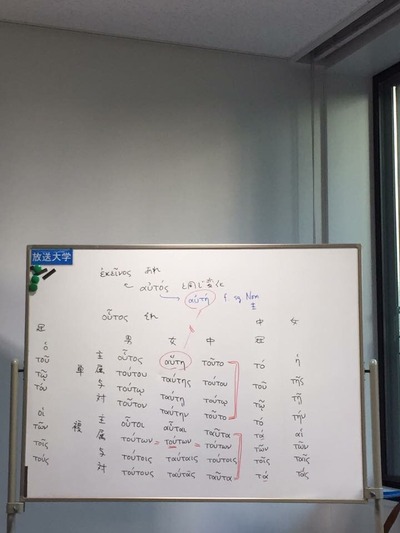 放送大学
ἐκεῖνος あれ
← αὐτός と同じ変化
→ αὐτή f. sg Nom 主
οὗτος それ
冠 男 女 中 中冠 女
ὁ 主 οὗτος αὕτη τοῦτο τό ἡ
τοῦ 単 属 τούτου ταύτης τούτου τοῦ τῆς
τῷ 与 τούτῳ ταύτῃ τούτῳ τῷ τῇ
τόν 対 τοῦτον ταύτην τοῦτο τό τήν
οἱ 主 οὗτοι αὗται ταῦτα τά αἱ
τῶν 複 属 τούτων = τούτων = τούτων τῶν τῶν
τοῖς 与 τούτοις ταύταις τούτοις τοῖς ταῖς
τούς 対 τούτους ταύτας ταῦτα τά τάς